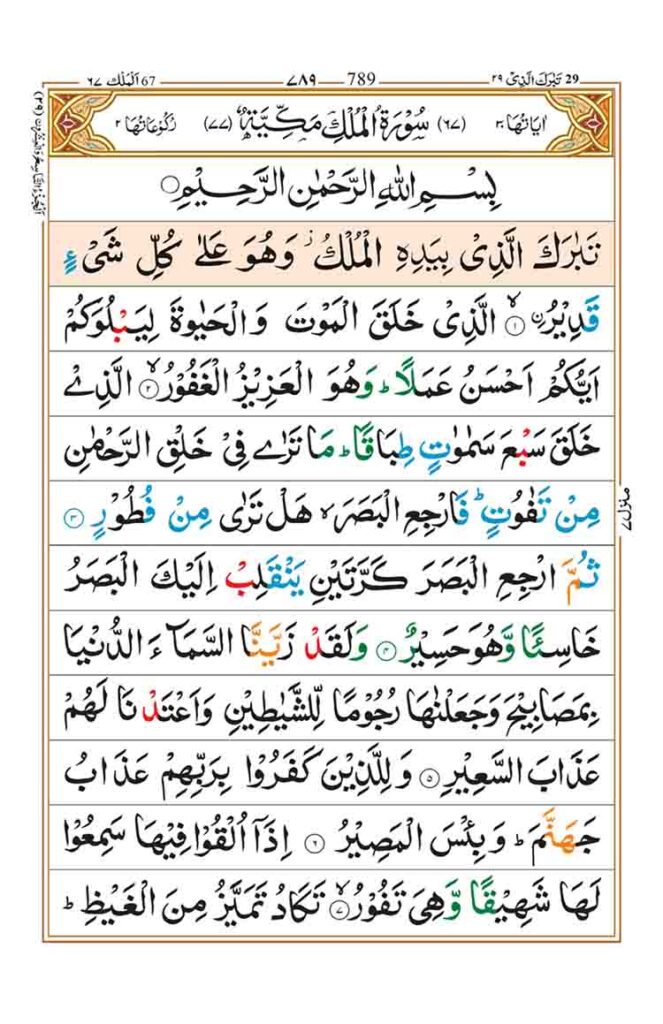 29 تَبٰرَكَ الَّذِیْ ۲۹ 789 ۷۸۹ 67 اَلْمُلْك ۶۷
اٰیَاتُهَا ۳۰ (۶۷) سُوْرَةُ الْمُلْكِ مَكِّیَّةٌ (۷۷) رُكُوْعَاتُهَا ۲
بِسْمِ اللهِ الرَّحْمٰنِ الرَّحِیْمِ
تَبٰرَكَ الَّذِیْ بِیَدِهِ الْمُلْكُ ز وَهُوَ عَلٰی كُلِّ شَیْءٍ
قَدِیْرُ ۨ ۙ﴿۱﴾ الَّذِیْ خَلَقَ الْمَوْتَ وَالْحَیٰوةَ لِیَبْلُوَكُمْ
اَیُّكُمْ اَحْسَنُ عَمَلًا ؕ وَهُوَ الْعَزِیْزُ الْغَفُوْرُ ۙ﴿۲﴾ الَّذِیْ
خَلَقَ سَبْعَ سَمٰوٰتٍ طِبَاقًا ؕ مَا تَرٰی فِیْ خَلْقِ الرَّحْمٰنِ
مِنْ تَفٰوُتٍ ؕ فَارْجِعِ الْبَصَرَ ۙ هَلْ تَرٰی مِنْ فُطُوْرٍ ﴿۳﴾
ثُمَّ ارْجِعِ الْبَصَرَ كَرَّتَیْنِ یَنْقَلِبْ اِلَیْكَ الْبَصَرُ
خَاسِئًا وَّهُوَ حَسِیْرٌ ﴿۴﴾ وَلَقَدْ زَیَّنَّا السَّمَآءَ الدُّنْیَا
بِمَصَابِیْحَ وَجَعَلْنٰهَا رُجُوْمًا لِّلشَّیٰطِیْنِ وَاَعْتَدْنَا لَهُمْ
عَذَابَ السَّعِیْرِ ﴿۵﴾ وَلِلَّذِیْنَ كَفَرُوْا بِرَبِّهِمْ عَذَابُ
جَهَنَّمَ ؕ وَبِئْسَ الْمَصِیْرُ ﴿۶﴾ اِذَاۤ اُلْقُوْا فِیْهَا سَمِعُوْا
لَهَا شَهِیْقًا وَّهِیَ تَفُوْرُ ۙ﴿۷﴾ تَكَادُ تَمَیَّزُ مِنَ الْغَیْظِ ؕ
اَلْجُزْءُ التَّاسِعُ وَالْعِشْرُوْنَ (۲۹)
منزل ۷